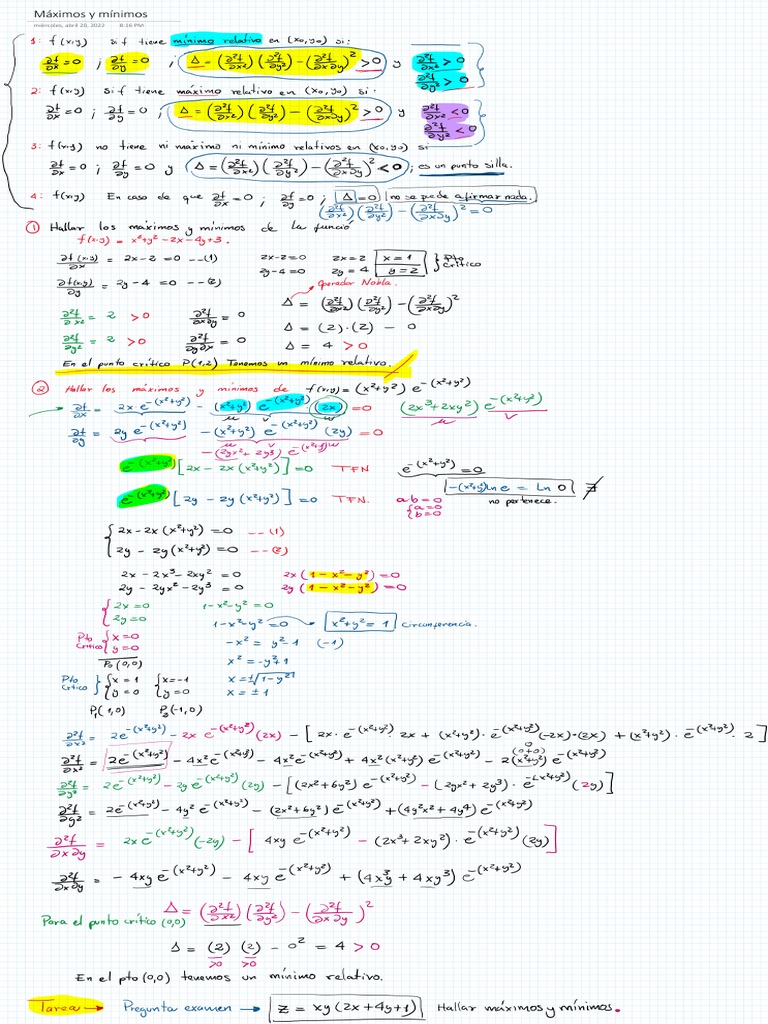 Máximos y mínimos
miércoles, abril 20, 2022 8:16 PM
1: f(x,y) si f tiene mínimo relativo en (x₀,y₀) si:
∂f/∂x = 0 ; ∂f/∂y = 0 ; Δ = (∂²f/∂x²)(∂²f/∂y²) − (∂²f/∂x∂y)² > 0 y ∂²f/∂x² > 0
∂²f/∂y² > 0
2: f(x,y) Si f tiene máximo relativo en (x₀,y₀) si:
∂f/∂x = 0 ; ∂f/∂y = 0 ; Δ = (∂²f/∂x²)(∂²f/∂y²) − (∂²f/∂x∂y)² > 0 y ∂²f/∂x² < 0
∂²f/∂y² < 0
3: f(x,y) no tiene ni máximo ni mínimo relativos en (x₀,y₀) si
∂f/∂x = 0 ; ∂f/∂y = 0 y Δ = (∂²f/∂x²)(∂²f/∂y²) − (∂²f/∂x∂y)² < 0 ; es un punto silla.
4: f(x,y) En caso de que ∂f/∂x = 0 ; ∂f/∂y = 0 ; Δ = 0 no se puede afirmar nada.
(∂²f/∂x²)(∂²f/∂y²) − (∂²f/∂x∂y)² = 0
① Hallar los máximos y mínimos de la funció
f(x,y) = x²+y²−2x−4y+3.
∂f(x,y)/∂x = 2x−2 = 0 --(1) 2x−2=0 2x=2 x=1 } Pto
∂f(x,y)/∂y = 2y−4 = 0 --(2) 2y−4=0 2y=4 y=2 Crítico
Operador Nabla.
∂²f/∂x² = 2 > 0 ∂²f/∂x∂y = 0 Δ = (∂²f/∂x²)(∂²f/∂y²) − (∂²f/∂x∂y)²
Δ = (2)·(2) − 0
∂²f/∂y² = 2 > 0 ∂²f/∂y∂x = 0 Δ = 4 > 0
En el punto crítico P(1,2) Tenemos un mínimo relativo.
② Hallar los máximos y mínimos de f(x,y) = (x²+y²) e^−(x²+y²)
∂f/∂x = 2x·e^−(x²+y²) − (x²+y²) e^−(x²+y²) · (2x) = 0 (2x³+2xy²) e^−(x²+y²)
u v w u v
∂f/∂y = 2y e^−(x²+y²) − (x²+y²) e^−(x²+y²) (2y) = 0
u v w
−(2yx²+2y³) e^−(x²+y²)
e^−(x²+y²) [2x − 2x(x²+y²)] = 0 TFN e^−(x²+y²) = 0
−(x²+y²) ln e = Ln 0 ∄
e^−(x²+y²) [2y − 2y(x²+y²)] = 0 TFN. ab=0 no pertenece.
{a=0
{b=0
{2x−2x(x²+y²) = 0 --(1)
{2y − 2y(x²+y²) = 0 --(2)
2x − 2x³ − 2xy² = 0 2x(1−x²−y²) = 0
2y − 2yx² − 2y³ = 0 2y(1−x²−y²) = 0
{2x=0 1−x²−y² = 0
{2y=0 1−x²−y² = 0 x²+y² = 1 circunferencia.
Pto {x=0 −x² = y²−1 (−1)
Crítico {y=0
P₀(0,0) x² = −y²+1
Pto } {x=1 {x=−1 x = ±√(1−y²)
Crítico {y=0 {y=0 x = ±1
P₁(1,0) P₂(−1,0)
∂²f/∂x² = 2e^−(x²+y²) − 2x e^−(x²+y²)(2x) − [2x·e^−(x²+y²)·2x + (x²+y²)·e^−(x²+y²)(−2x)·(2x) + (x²+y²)·e^−(x²+y²)·2]
0
(0+0)
∂²f/∂x² = 2e^−(x²+y²) − 4x²e^−(x²+y²) − 4x²e^−(x²+y²) + 4x²(x²+y²) e^−(x²+y²) − 2(x²+y²) e^−(x²+y²)
∂²f/∂y² = 2e^−(x²+y²) − 2y e^−(x²+y²)(2y) − [(2x²+6y²) e^−(x²+y²) − (2yx²+2y³)·e^−(x²+y²)(2y)]
∂²f/∂y² = 2e^−(x²+y²) − 4y² e^−(x²+y²) − (2x²+6y²) e^−(x²+y²) + (4y²x²+4y⁴) e^−(x²+y²)
∂²f/∂x∂y = 2x e^−(x²+y²)(−2y) − [4xy e^−(x²+y²) − (2x³+2xy²)·e^−(x²+y²)(2y)]
∂²f/∂x∂y = −4xy e^−(x²+y²) − 4xy e^−(x²+y²) + (4x³y + 4xy³) e^−(x²+y²)
Para el punto crítico (0,0) Δ = (∂²f/∂x²)(∂²f/∂y²) − (∂²f/∂x∂y)²
Δ = (2)(2) − 0² = 4 > 0
>0 >0
En el pto (0,0) tenemos un mínimo relativo.
Tarea → Pregunta examen → Z = xy(2x+4y+1) Hallar máximos y mínimos.